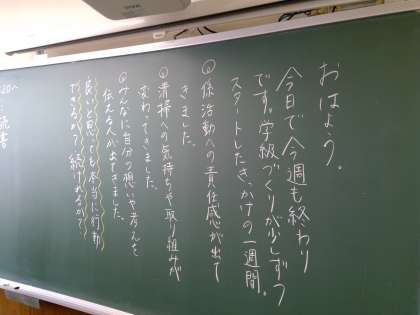 おはよう。
今日で今週も終わり
です。学級づくりが少しずつ
スタートしたきっかけの一週間。
①係活動への責任感が出て
きました。
②清掃への気持ちや取り組みが
変わってきました。
③みんなに自分の想いや考えを
伝える人が出てきました。
良いと思っても本当に行動
できるか？続けれるか？
8:20〜
読書